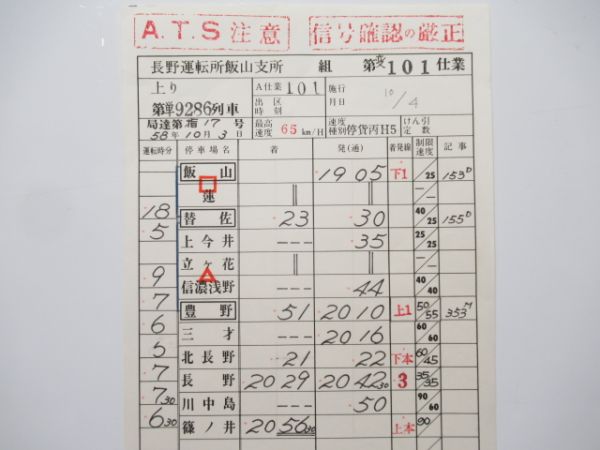 A.T.S注意 信号確認の厳正
長野運転所飯山支所 組 第変101仕業
上り A仕業 101 施行月日 10/4
第単9286列車 出区時刻
局達第指17号 58年10月3日 最高速度 65km/H 速度種別 停貨丙H5 けん引定数
運転時分 停車場名 着 発(通) 着発線 制限速度 記事
飯山 19 05 下1 25 153D
蓮 ‖ ‖ —
18 替佐 23 30 40/25 155D
5 上今井 --- 35 25/25
立ヶ花 ‖ ‖ —
9 信濃浅野 --- 44 40/40
7 豊野 51 20 10 上1 50/55 353M
6 三才 --- 20 16 60/60
5 北長野 21 22 下本 60/45
7 長野 20 29 20 42 30 3 35/35
7 30 川中島 --- 50 90/60
6 30 篠ノ井 20 56 30 上本 90